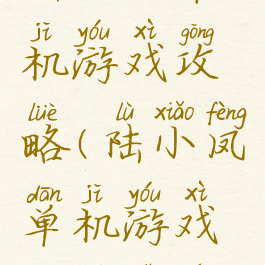 jī yóu xì gōng
机游戏攻
lüè lù xiǎo fèng
略(陆小凤
dān jī yóu xì
单机游戏